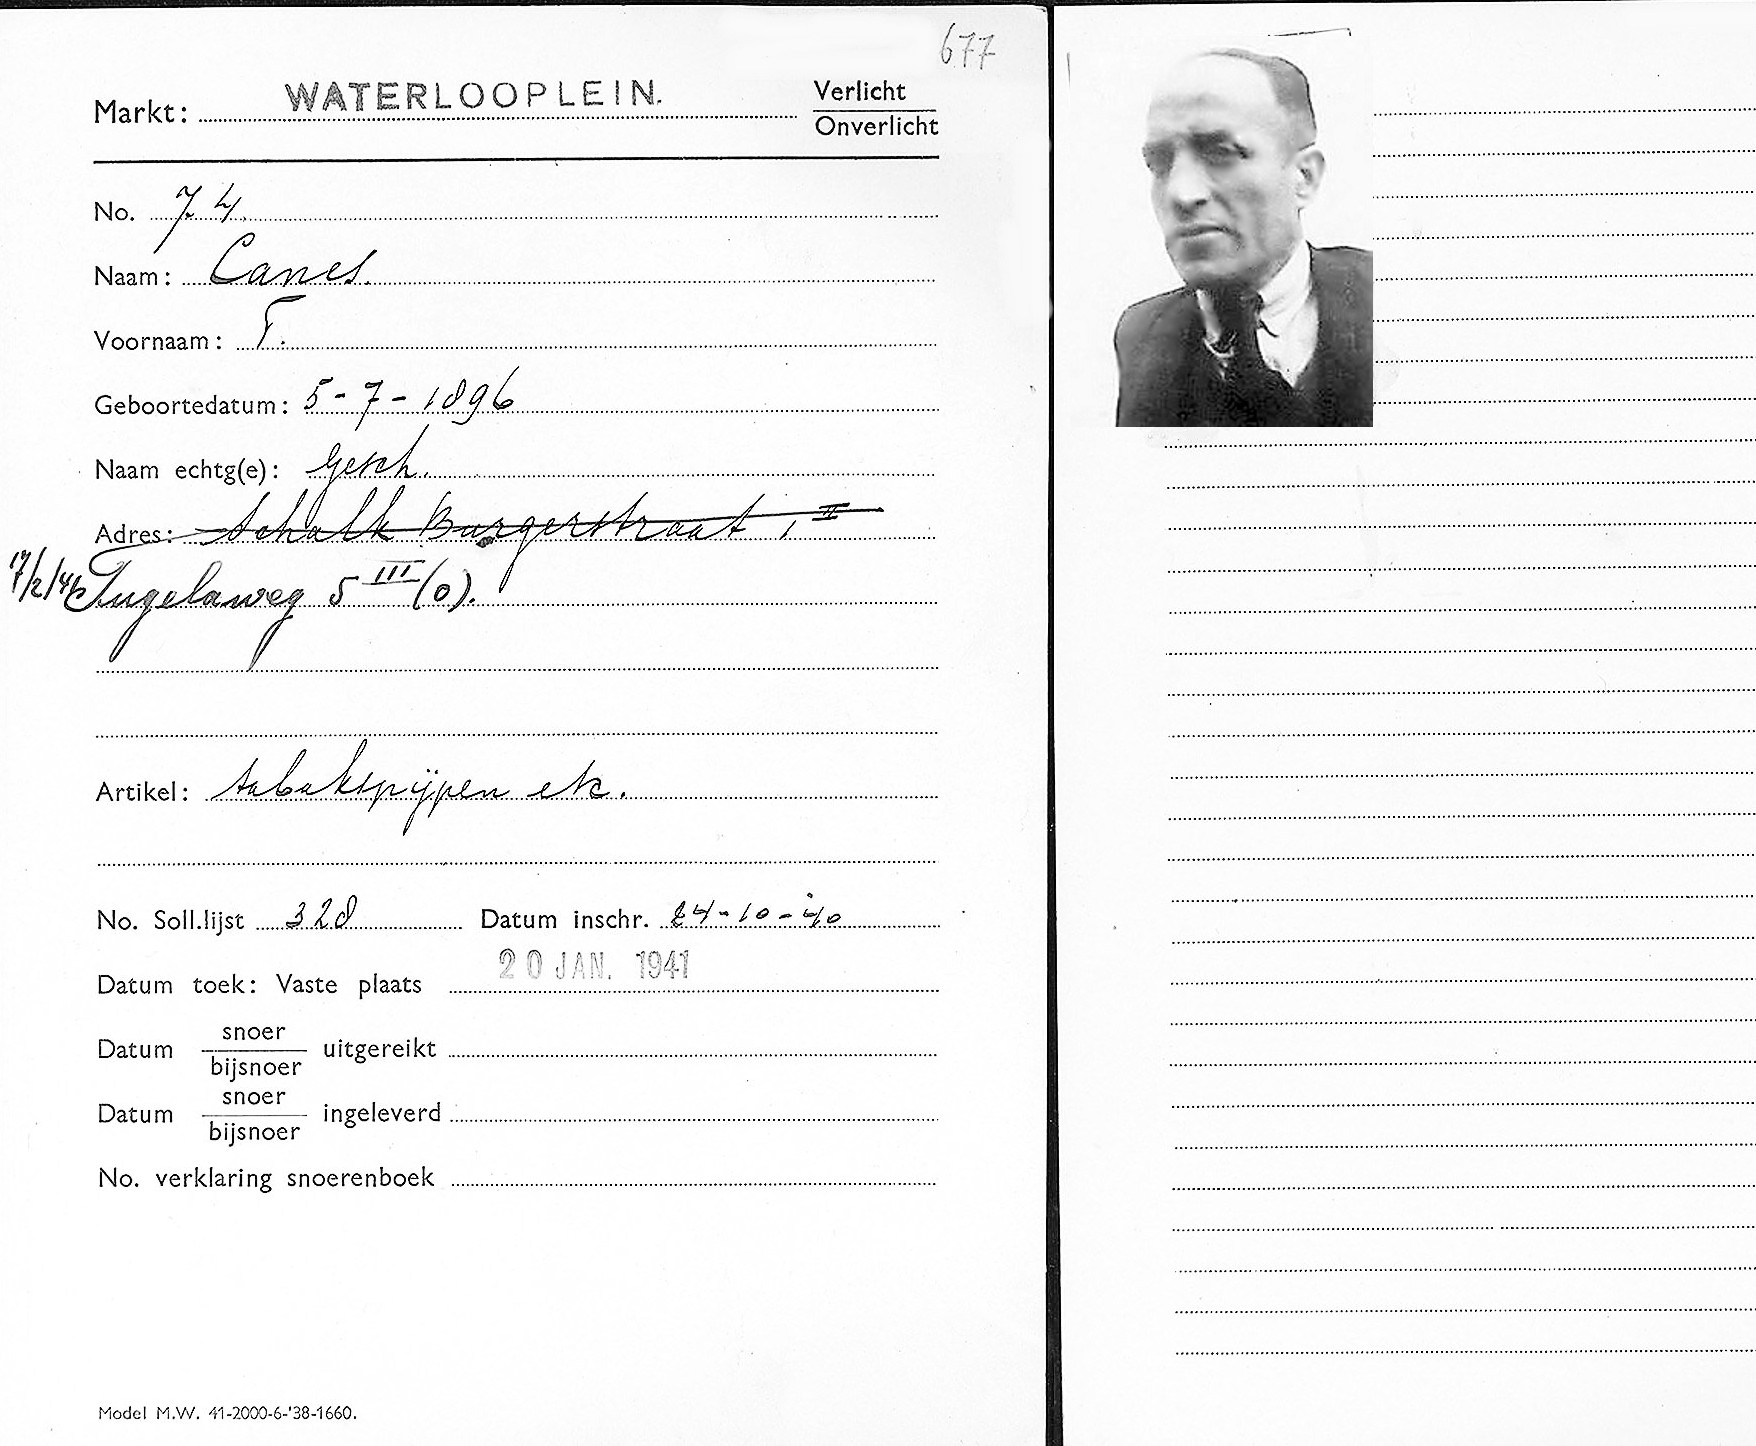 677
Markt: WATERLOOPLEIN. Verlicht
Onverlicht
No. 74.
Naam: Canes.
Voornaam: F.
Geboortedatum: 5-7-1896
Naam echtg(e): gesch.
Adres: Schalk Burgerstraat 1 II
17/2/42 Tugelaweg 5 III (o).
Artikel: tabakspijpen etc.
No. Soll.lijst 328 Datum inschr. 24-10-40
Datum toek: Vaste plaats 20 JAN. 1941
Datum snoer uitgereikt
bijsnoer
Datum snoer ingeleverd
bijsnoer
No. verklaring snoerenboek
Model M.W. 41-2000-6-'38-1660.